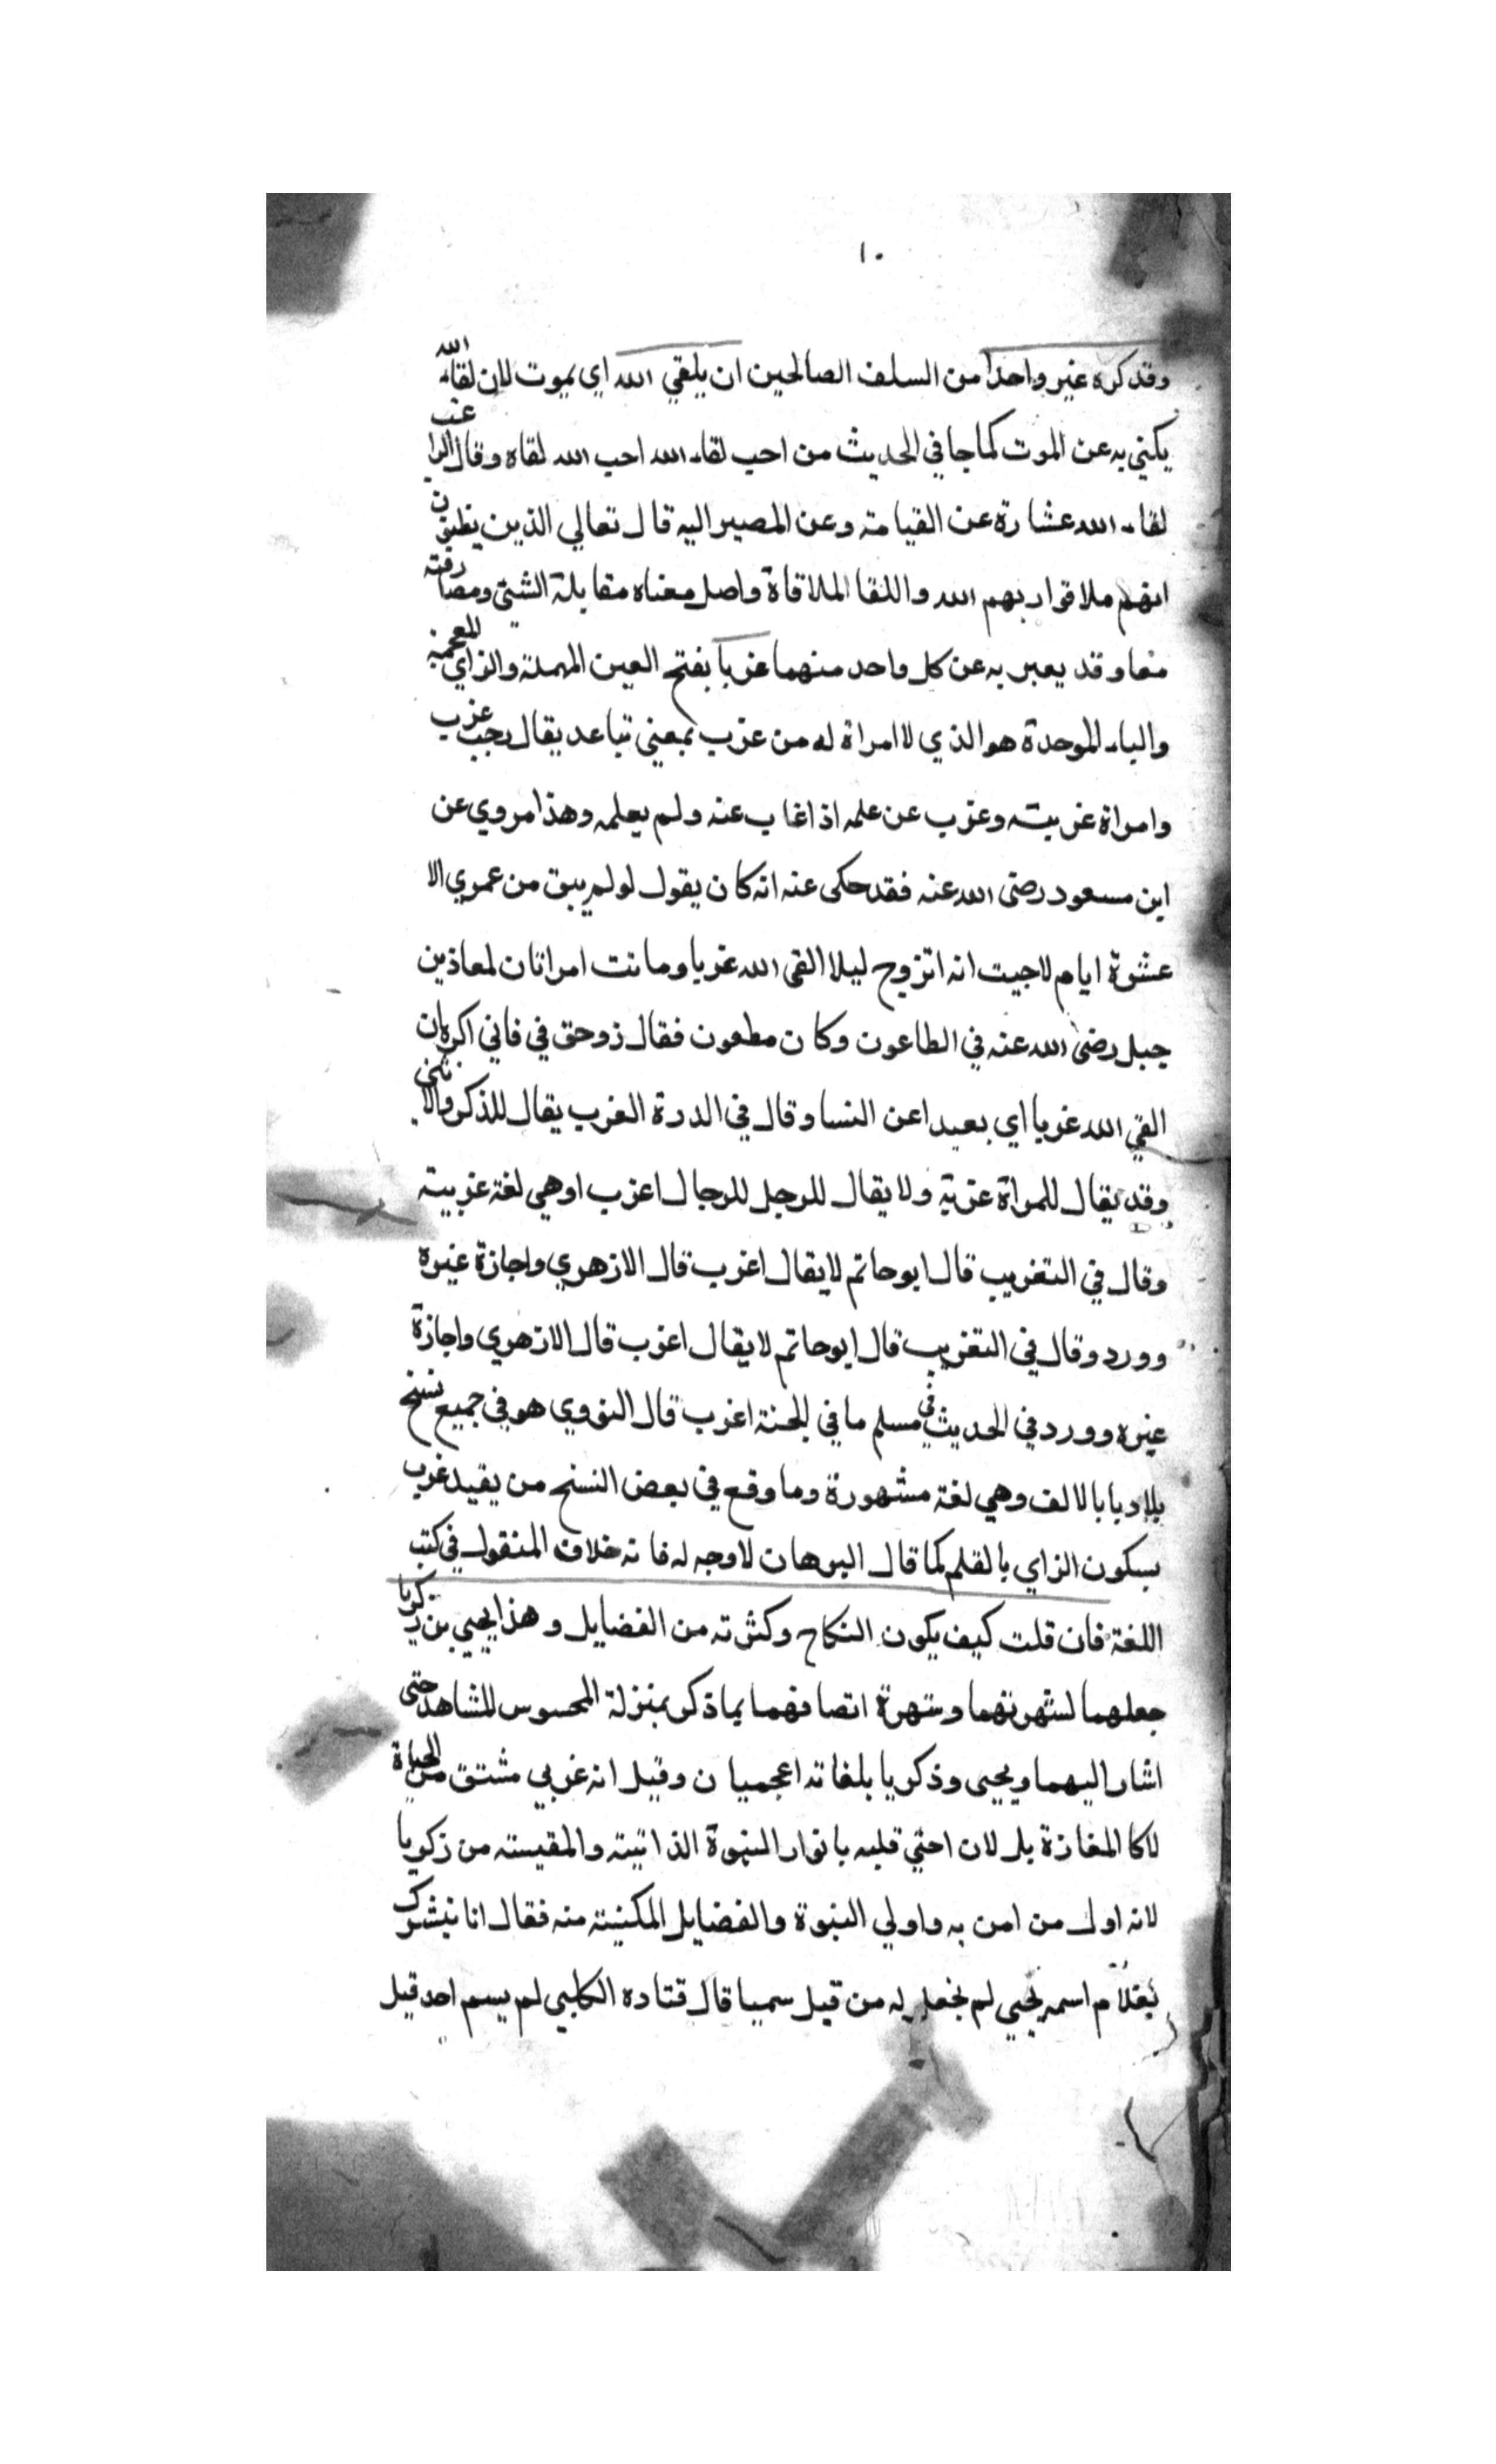 ١٠
وقد كره غير واحدا من السلف الصالحين ان يلقي الله اي يموت لان لقاء الله
يكني به عن الموت كما جا في الحديث من احب لقاء الله احب الله لقاه وقال الراغب
لقاء الله عشارة عن القيامة وعن المصير اليه قال تعالي الذين يظنون
انهم ملاقوا ربهم الله واللقا الملاقاة واصل معناه مقابلة الشئ ومصارفته
معا وقد يعبر به عن كل واحد منهما عزبا بفتح العين المهملة والزاي المعجمة
والباء الموحدة هو الذي لا امراة له من عزب بمعني تباعد يقال رجب عزب
وامراة عزبيته وعزب عن علمه اذا غاب عنه ولم يعلمه وهذا مروي عن
ابن مسعود رضى الله عنه فقد حكى عنه انه كان يقول لو لم يبق من عمري الا
عشرة ايام لاجيت انه اتزوج ليلا القى الله عزبا وماتت امراتان لمعاذ بن
جبل رضى الله عنه في الطاعون وكان مطعون فقال زوحق في فاني اكره ان
القي الله عزبا اي بعيدا عن النسا وقال في الدرة العزب يقال للذكر والانثى
وقد يقال للمراة عزبة ولا يقال للرجل للرجال اعزب اوهي لغة غريبة
وقال في التغريب قال ابو حاتم لا يقال اعزب قال الازهري واجازة غيره
وورد وقال في التغريب قال ابو حاتم لا يقال اعزب قال الازهري واجازة
غيره وورد في الحديث في مسلم ما في الجنة اعزب قال النووي هو في جميع نسخ
بلاديا بالالف وهي لغة مشهورة وما وقع في بعض النسخ من يقيد عزب
بسكون الزاي بالقلم كما قال البرهان لا وجه له فانه خلاف المنقول في كتب
اللغة فان قلت كيف يكون النكاح وكثرته من الفضايل وهذا يحيي بن زكريا
جعلهما لشهرتهما وشهرة اتصافهما بما ذكر بمنزلة المحسوس للمشاهد حتى
اشار اليهما ويحيى وذكريا بلغاته اعجميان وقيل انه عربي مشتق من الحياة
لاكا المفازة بل لان احيي قلبه بانوار النبوة الذاتية والمقيسته من زكريا
لانه اول من امن به واولي النبوة والفضايل المكنيته منه فقال انا نبشرك
بغلام اسمه يحيي لم نجعل له من قبل سميا قال قتاده الكلبي لم يسم احد قبل